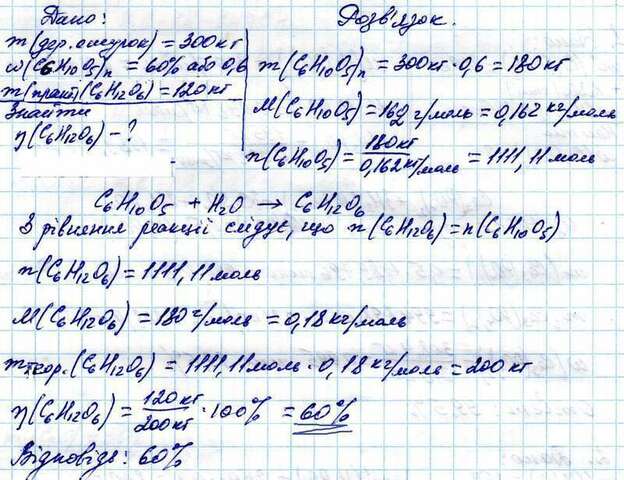 Дано:
m(дер. ошурок) = 300кг
ω(C6H10O5)n = 60% або 0,6
m(практ)(C6H12O6) = 120кг
Знайти
η(C6H12O6) - ?
Розв'язок.
m(C6H10O5)n = 300кг · 0,6 = 180кг
M(C6H10O5) = 162г/моль = 0,162 кг/моль
n(C6H10O5) = 180кг / 0,162кг/моль = 1111,11моль
C6H10O5 + H2O → C6H12O6
З рівняння реакції слідує, що n(C6H12O6) = n(C6H10O5)
n(C6H12O6) = 1111,11моль
M(C6H12O6) = 180г/моль = 0,18кг/моль
m теор.(C6H12O6) = 1111,11моль · 0,18кг/моль = 200кг
η(C6H12O6) = 120кг / 200кг · 100% = 60%
Відповідь: 60%